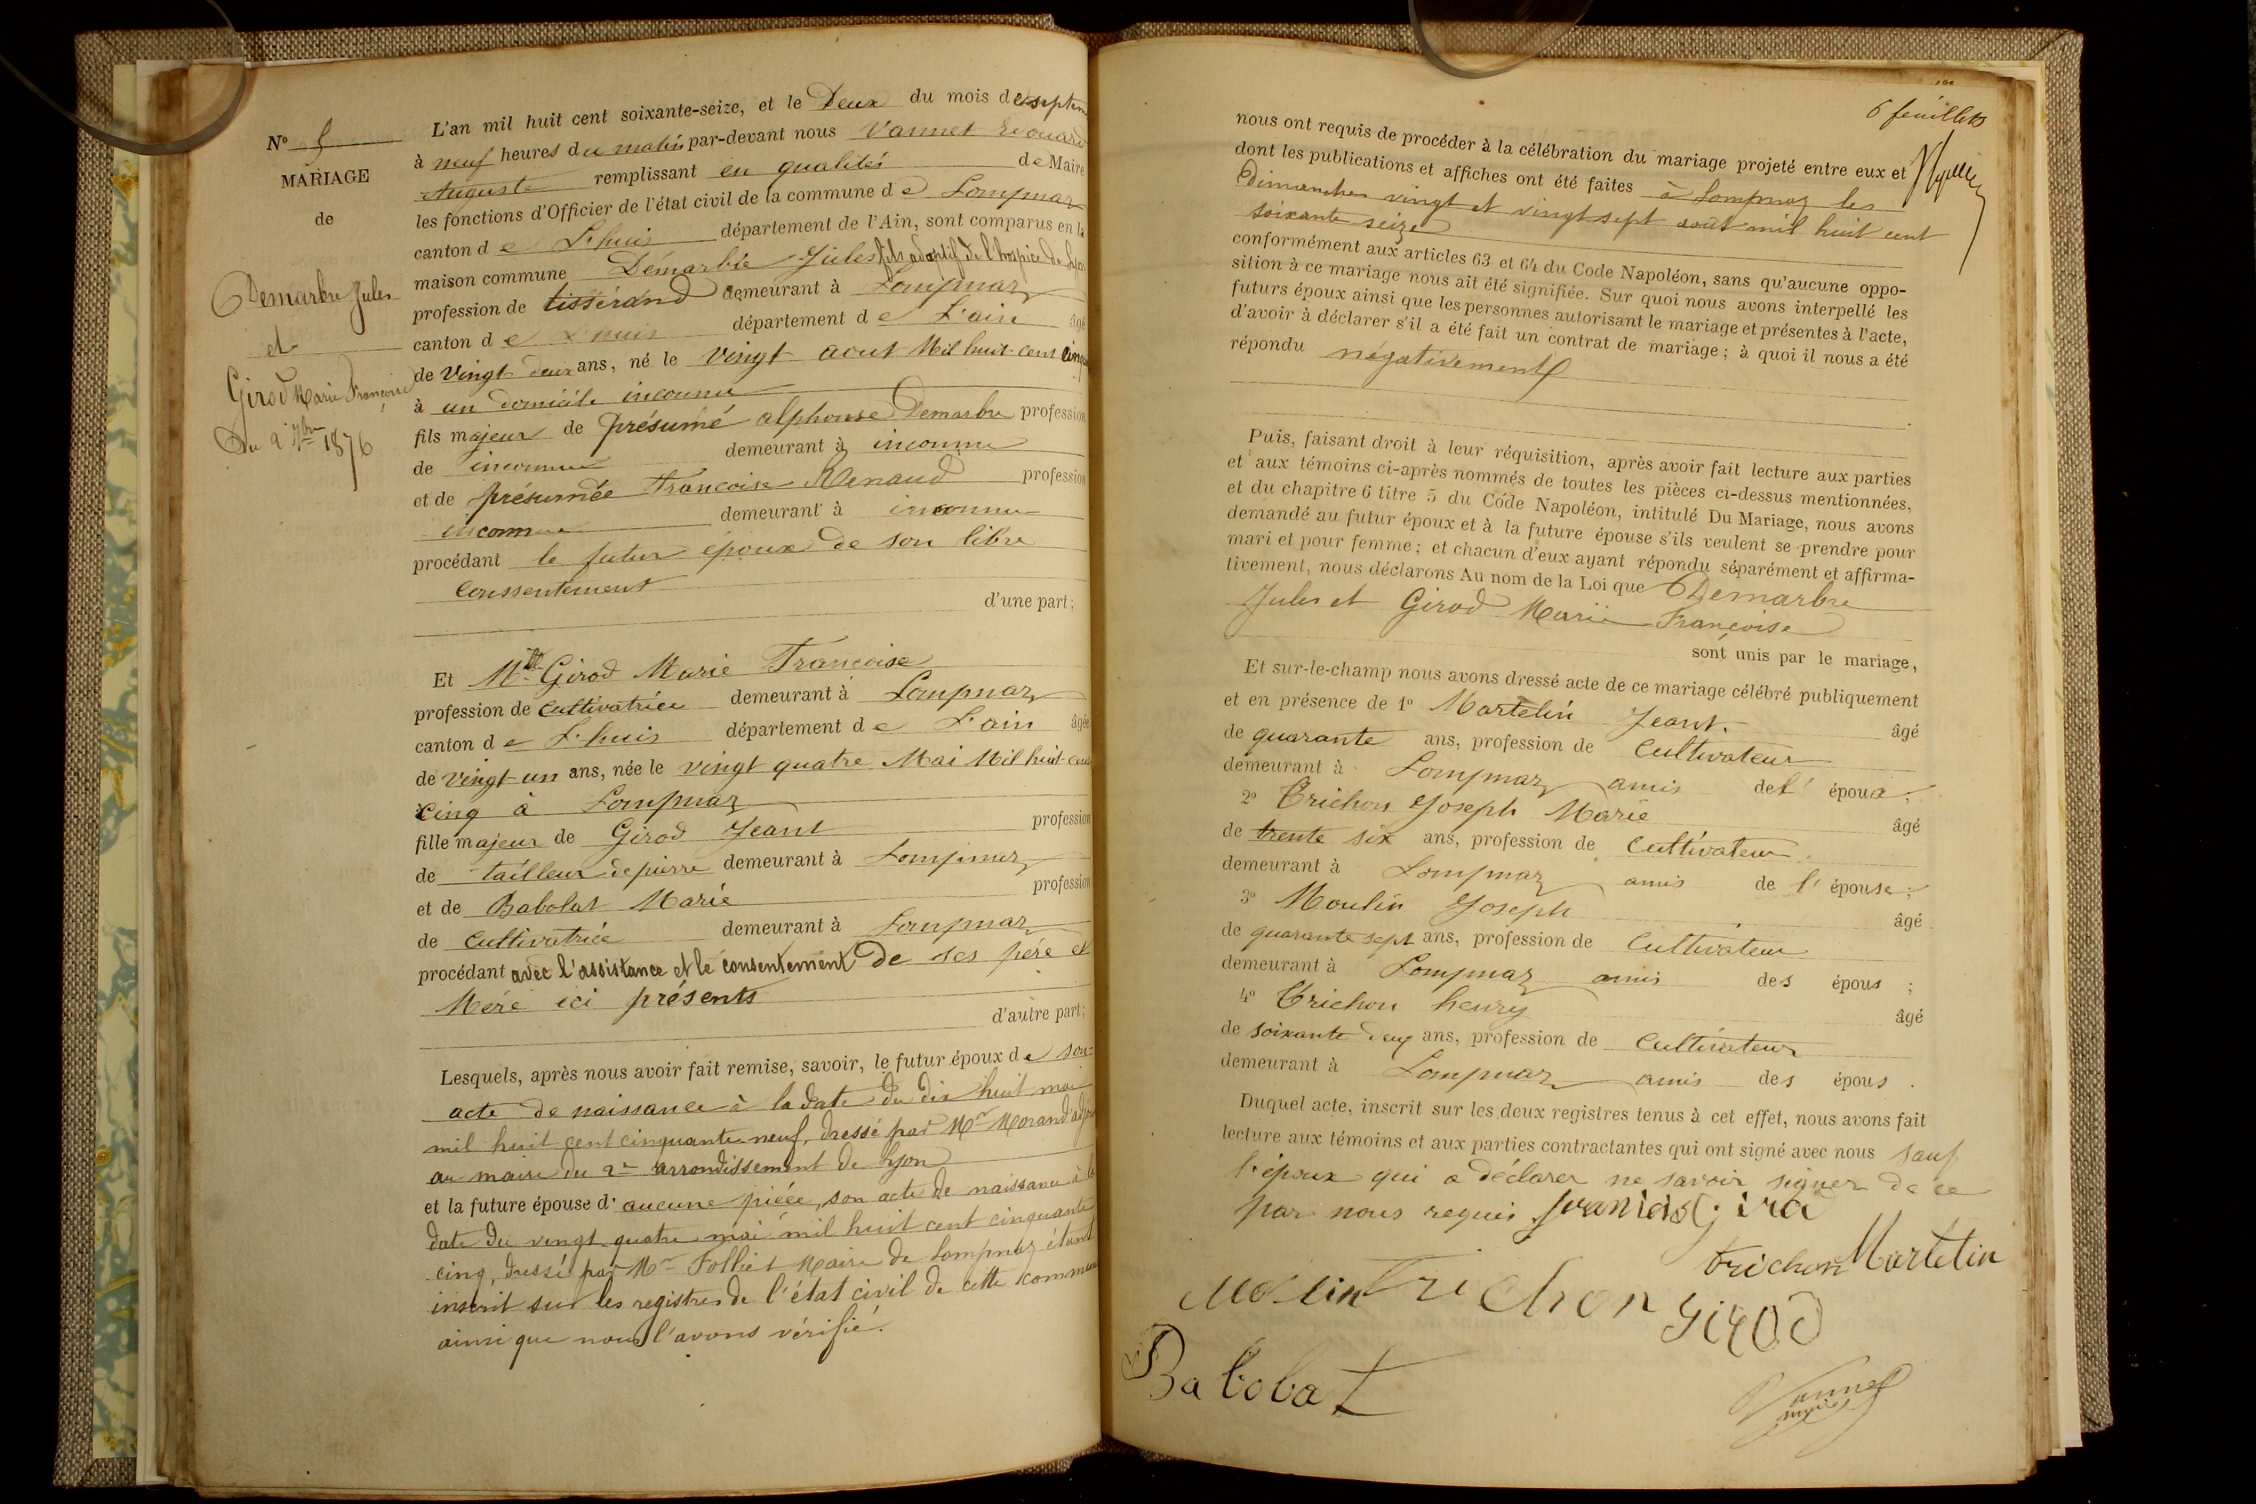 N° 5
MARIAGE
de
Demarbre Jules
et
Girod Marie Françoise
Du 2 7bre 1876
L'an mil huit cent soixante-seize, et le Deux du mois de septem
à neuf heures du matin par-devant nous Vannet Edouard
Auguste remplissant en qualités de Maire
les fonctions d'Officier de l'état civil de la commune de Lompnaz
canton de L'huis département de l'Ain, sont comparus en la
maison commune Démarbre Jules fils adoptif de l'hospice de Lyon
profession de tissérand demeurant à Lompnaz
canton de L'huis département de L'ain âgé
de Vingt deux ans, né le vingt aout Mil huit cent cinq
à un domicile inconnu
fils majeur de présumé alphonse Demarbre profession
de inconnue demeurant à inconnu
et de présumée Françoise Renaud profession
inconnue demeurant à inconnu
procédant le futur époux de son libre
conssentement
d'une part;
Et Mlle Girod Marie Françoise
profession de Cultivatrice demeurant à Lompnaz
canton de L'huis département de L'ain âgée
de vingt-un ans, née le vingt quatre Mai Mil huit cent
cinq à Lompnaz
fille majeur de Girod Jeant profession
de tailleur de pierre demeurant à Lompnaz
et de Babolat Marie profession
de Cultivatrice demeurant à Lompnaz
procédant avec l'assistance et le consentement de ses père et
Mère ici présents
d'autre part;
Lesquels, après nous avoir fait remise, savoir, le futur époux de son
acte de naissance à la date du dix huit mai
mil huit cent cinquante neuf, dressé par Mr Morand adjoint
au maire du 2e arrondissement de Lyon
et la future épouse d'aucune pièce, son acte de naissance à la
date du vingt quatre mai mil huit cent cinquante
cinq, dressé par Mr Folliet Maire de Lompnaz étant
inscrit sur les registres de l'état civil de cette commune
ainsi que nous l'avons vérifié.
6 feuillets
nous ont requis de procéder à la célébration du mariage projeté entre eux et
dont les publications et affiches ont été faites à Lompnaz les
Dimanches vingt et vingt sept août mil huit cent
soixante seize
conformément aux articles 63 et 64 du Code Napoléon, sans qu'aucune oppo-
sition à ce mariage nous ait été signifiée. Sur quoi nous avons interpellé les
futurs époux ainsi que les personnes autorisant le mariage et présentes à l'acte,
d'avoir à déclarer s'il a été fait un contrat de mariage; à quoi il nous a été
répondu négativement
Puis, faisant droit à leur réquisition, après avoir fait lecture aux parties
et aux témoins ci-après nommés de toutes les pièces ci-dessus mentionnées,
et du chapitre 6 titre 5 du Code Napoléon, intitulé Du Mariage, nous avons
demandé au futur époux et à la future épouse s'ils veulent se prendre pour
mari et pour femme; et chacun d'eux ayant répondu séparément et affirma-
tivement, nous déclarons Au nom de la Loi que Demarbre
Jules et Girod Marie Françoise
sont unis par le mariage,
Et sur-le-champ nous avons dressé acte de ce mariage célébré publiquement
et en présence de 1° Martelin Jeant. âgé
de quarante ans, profession de Cultivateur
demeurant à Lompnaz amis de l' époux;
2° Trichon Joseph Marie âgé
de trente six ans, profession de Cultivateur
demeurant à Lompnaz amis de l' épouse;
3° Moulin Joseph âgé
de quarante sept ans, profession de Cultivateur
demeurant à Lompnaz amis des épous;
4° Trichon henry âgé
de soixante deux ans, profession de Cultivateur
demeurant à Lompnaz amis des épous.
Duquel acte, inscrit sur les deux registres tenus à cet effet, nous avons fait
lecture aux témoins et aux parties contractantes qui ont signé avec nous sauf
l'époux qui a déclarer ne savoir signer de ce
par nous requis
trichon Martelin
Molin Trichon Girod
Babolat
Vannet